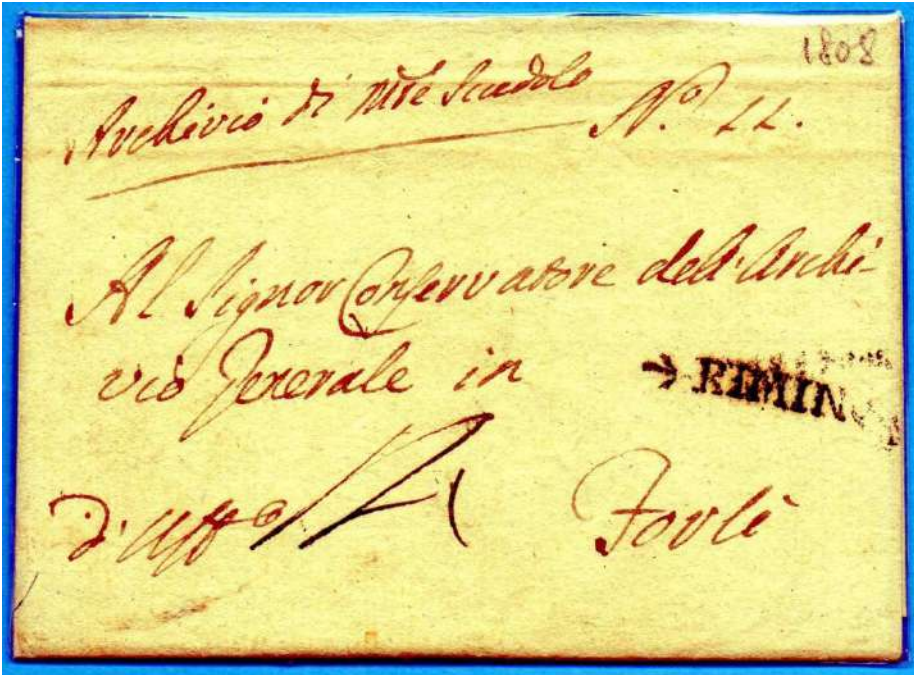 1808
Archivio di Mte Scudolo N.o 22.
Al Signor Conservatore dell'Archi-
vio Generale in
RIMINO
d'Uffo Forlì